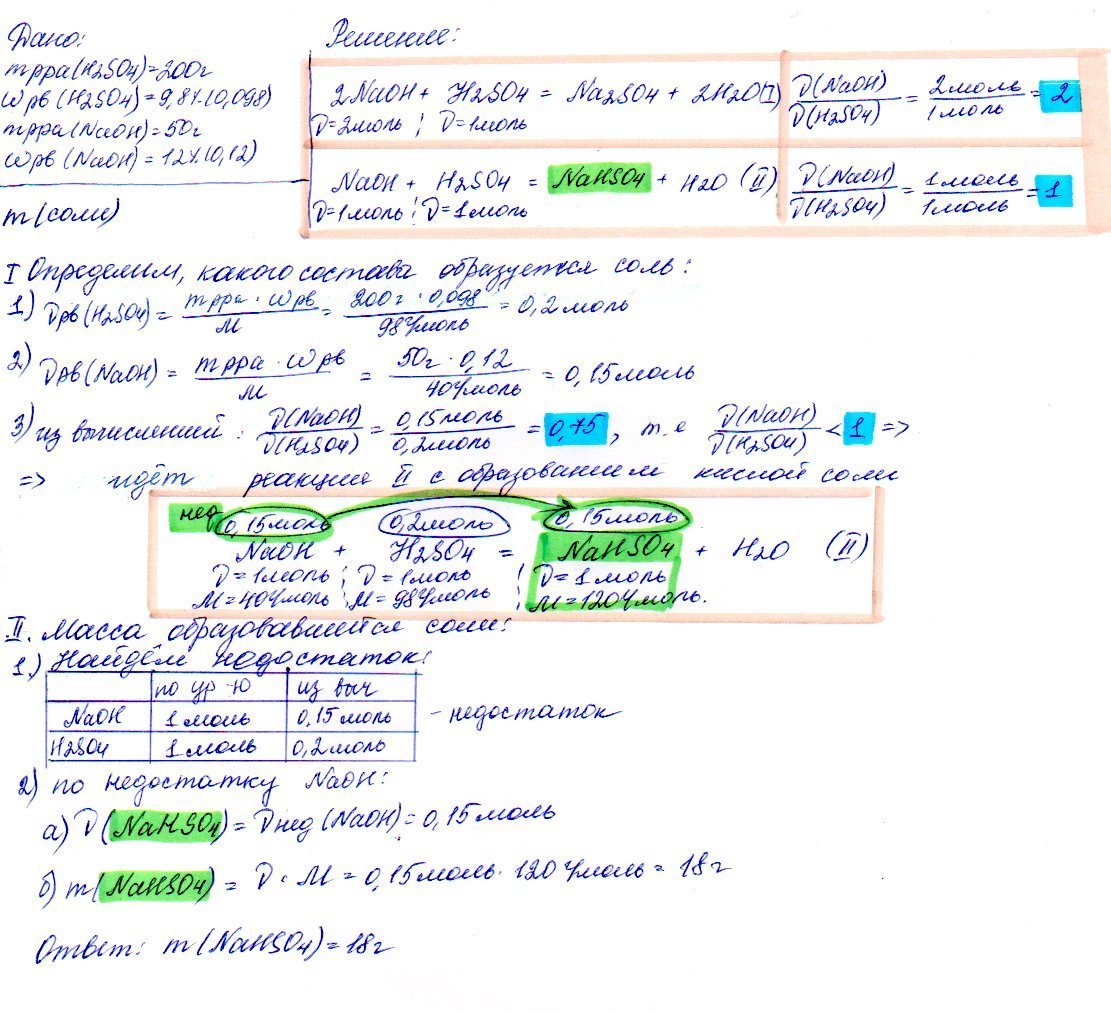 Дано:
mрра(H2SO4)=200г
ωрв(H2SO4)=9,8%(0,098)
mрра(NaOH)=50г
ωрв(NaOH)=12%(0,12)
m(соли)
Решение:
2NaOH + H2SO4 = Na2SO4 + 2H2O (I) ν(NaOH)/ν(H2SO4) = 2моль/1моль = 2
ν=2моль ; ν=1моль
NaOH + H2SO4 = NaHSO4 + H2O (II) ν(NaOH)/ν(H2SO4) = 1моль/1моль = 1
ν=1моль ; ν=1моль
I Определим, какого состава образуется соль:
1) νрв(H2SO4) = mрра · ωрв/M = 200г · 0,098/98г/моль = 0,2моль
2) νрв(NaOH) = mрра · ωрв/M = 50г · 0,12/40г/моль = 0,15моль
3) из вычислений: ν(NaOH)/ν(H2SO4) = 0,15моль/0,2моль = 0,75, т.е ν(NaOH)/ν(H2SO4) < 1 =>
=> идёт реакция II с образованием кислой соли
нед 0,15моль 0,2моль 0,15моль
NaOH + H2SO4 = NaHSO4 + H2O (II)
ν=1моль ; ν=1моль ; ν=1моль
M=40г/моль ; M=98г/моль ; M=120г/моль.
II. Масса образовавшейся соли:
1.) Найдём недостаток:
по ур-ю из выч
NaOH 1моль 0,15моль - недостаток
H2SO4 1моль 0,2моль
2) по недостатку NaOH:
а) ν(NaHSO4) = νнед(NaOH) = 0,15моль
б) m(NaHSO4) = ν · M = 0,15моль · 120г/моль = 18г
Ответ: m(NaHSO4)=18г